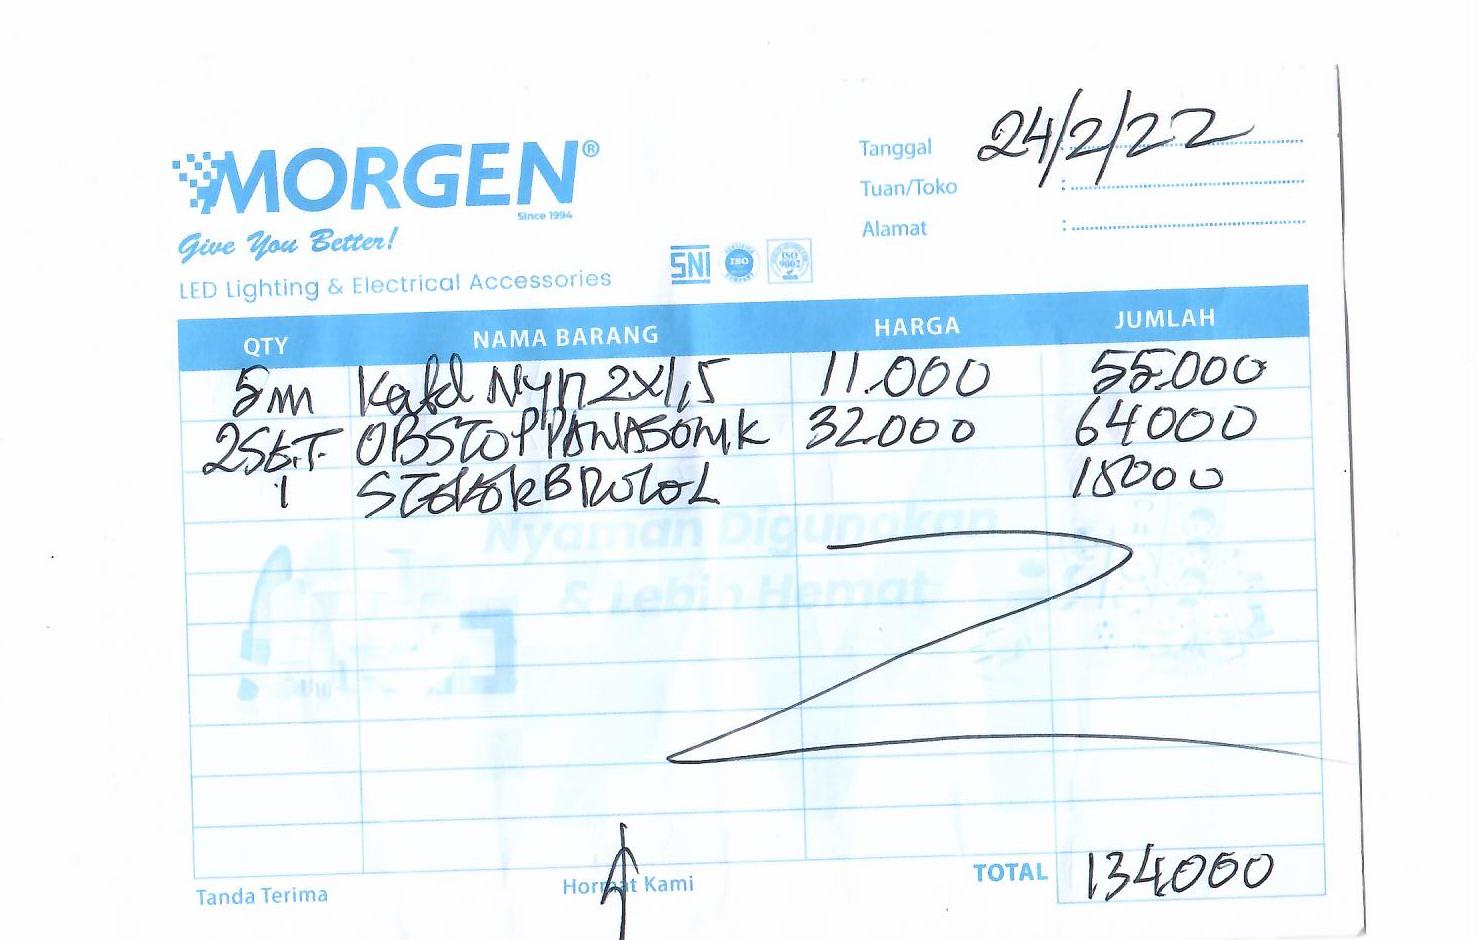 MORGEN®
Since 1994
Give You Better!
LED Lighting & Electrical Accessories
SNI ISO ISO 9002
Tanggal 24/2/22
Tuan/Toko :
Alamat :
QTY NAMA BARANG HARGA JUMLAH
5m Kabel Nym 2x1,5 11.000 55.000
2SET OBSTOP PANASONIK 32.000 64000
1 STEKER BROCOL 15000
Nyaman Digunakan
& Lebih Hemat
TOTAL 134000
Tanda Terima Hormat Kami